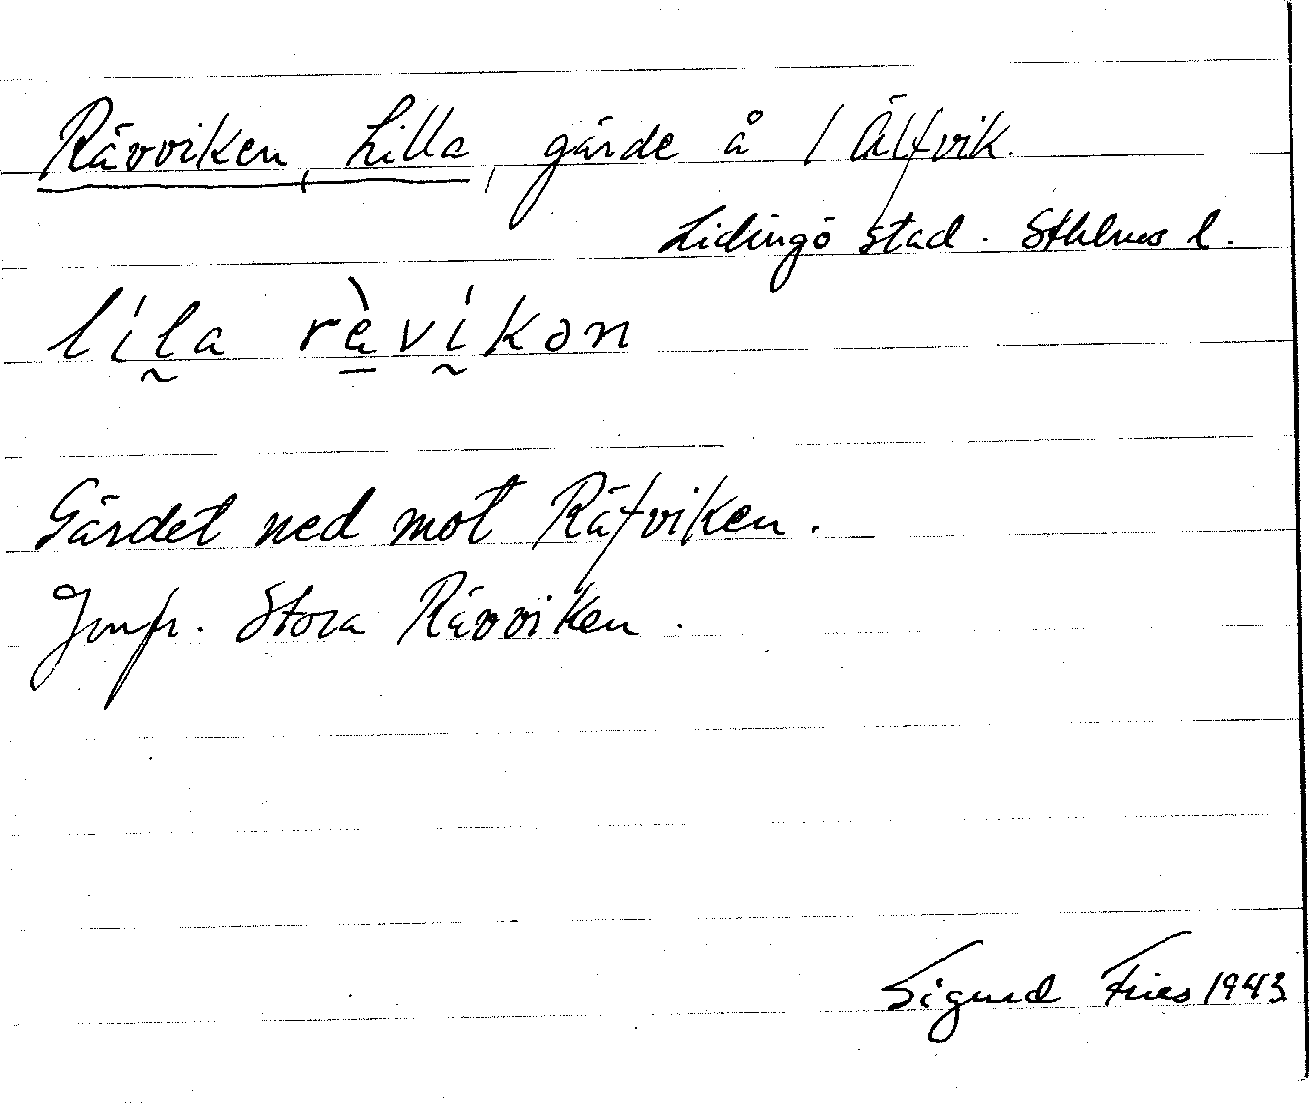 Rävviken, Lilla, gärde å 1 Älfvik.
Lidingö stad. Sthlms l.
líl̰a ràvḭ́kən
Gärdet ned mot Räfviken.
Jmfr. Stora Rävviken.
Sigurd Fries 1943